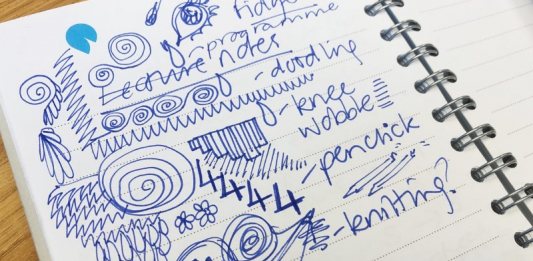 fidge
programme
Lecture notes
- doodling
- knee
wobble
- penclick
4444
- knitting?